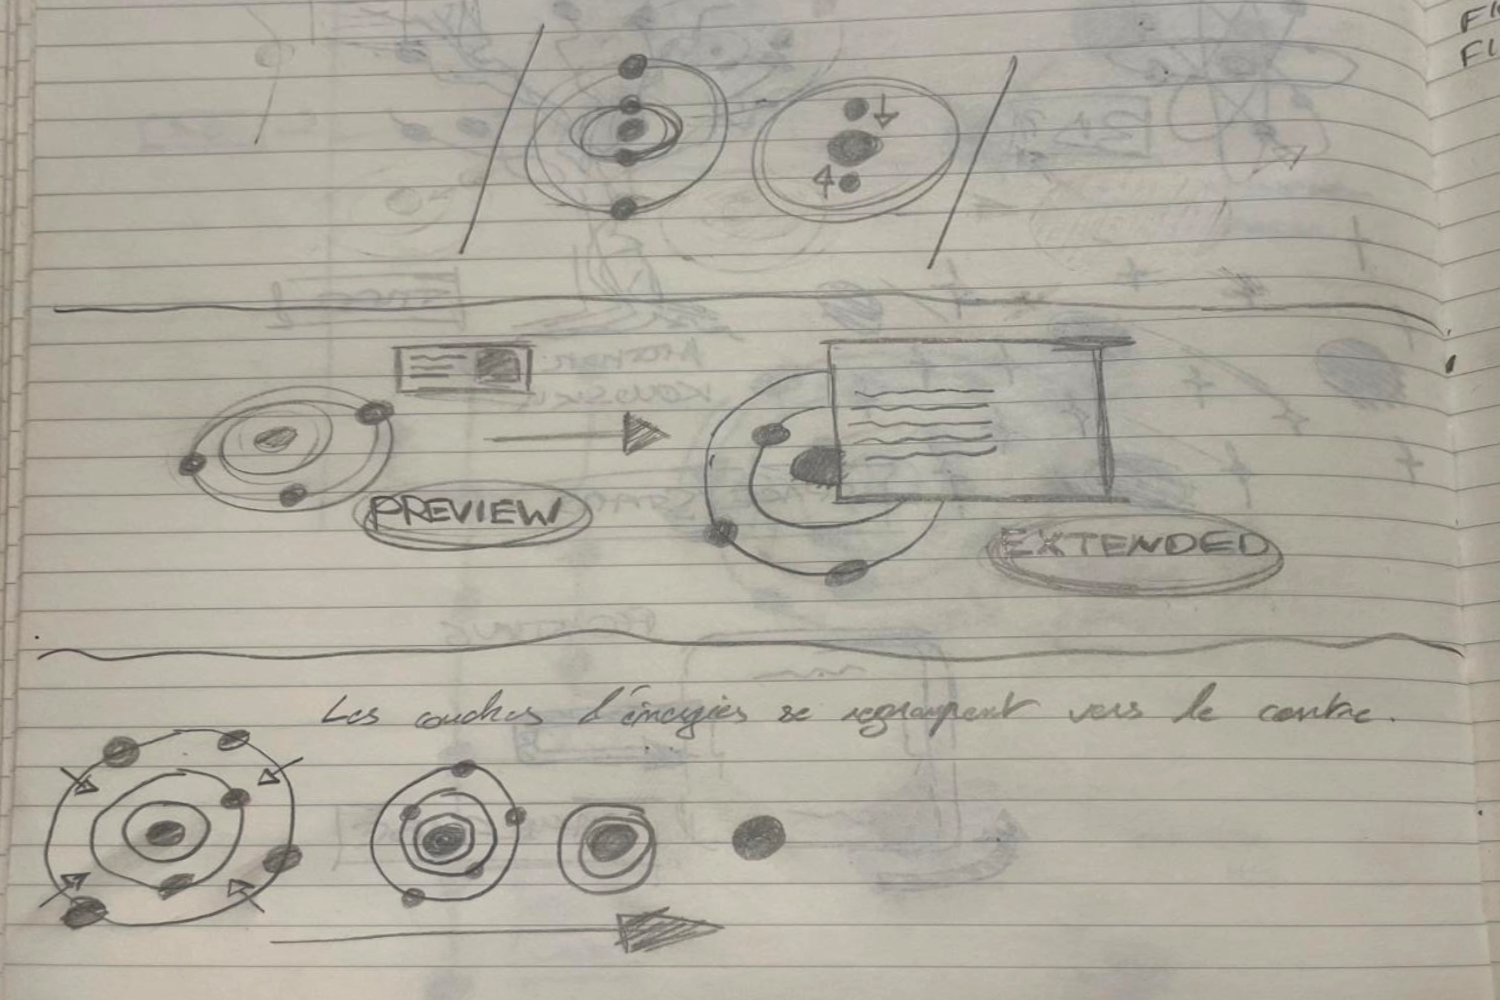 PREVIEW
EXTENDED
Les couches d'énergies se regroupent vers le centre.